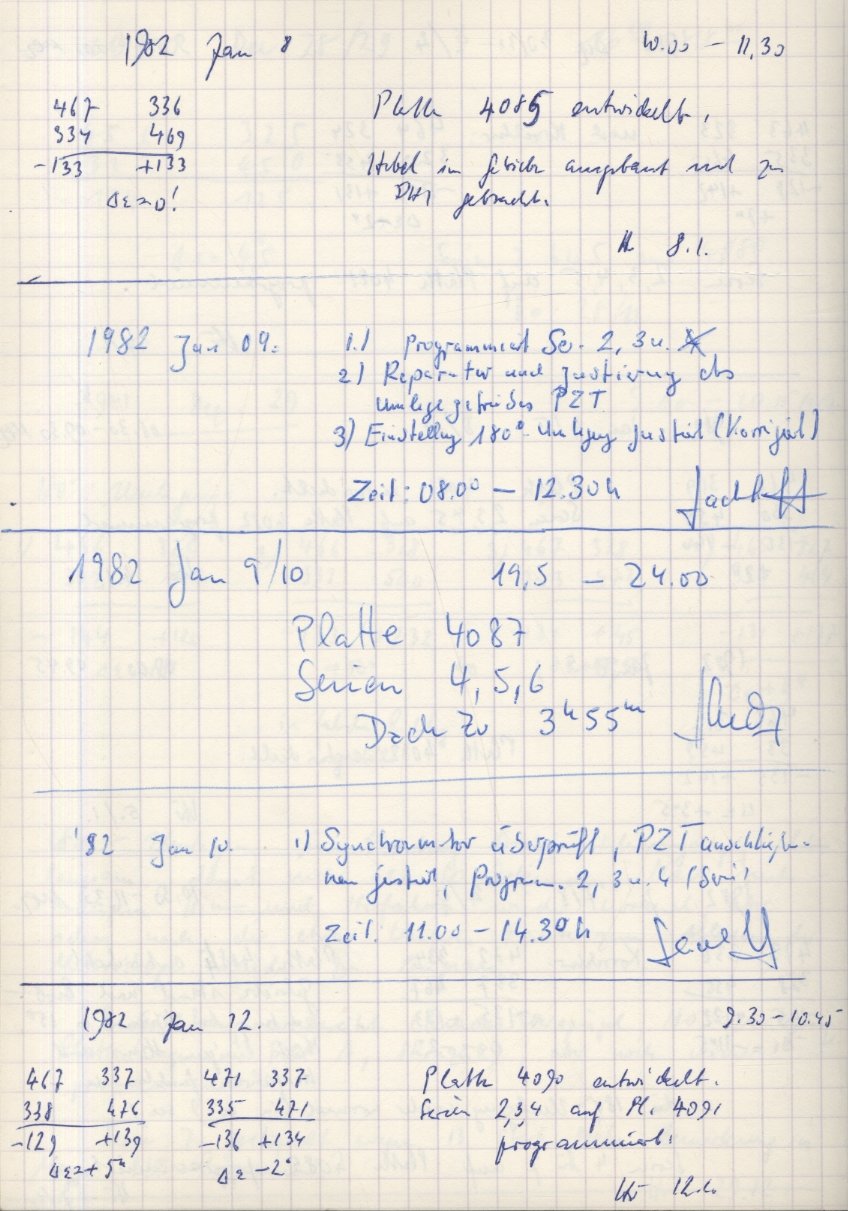 1982 Jan 8 10.00 – 11.30
467 336 Platte 4085 entwickelt.
334 469
-133 +133 Hebel im Getriebe ausgebaut und zu
Δε=0! DHI gebracht.
8.1.
1982 Jan 09. 1.) Programmiert Ser. 2, 3 u.
2) Reparatur und Justierung des
Umlegegetriebes PZT
3) Einstellung 180° Umlegung justiert (Korrigiert)
Zeit: 08.00 – 12.30h
1982 Jan 9/10 19,5 – 24.00
Platte 4087
Serien 4, 5, 6
Dach zu 3h55m
'82 Jan 10. 1) Synchronmotor überprüft, PZT
neu justiert, Programm. 2, 3 u. 4 (Serie)
Zeit: 11.00 – 14.30h
1982 Jan 12. 9.30 – 10.45
467 337 471 337 Platte 4090 entwickelt.
338 476 335 471 Serien 2,3,4 auf Pl. 4091
-129 +139 -136 +134 programmiert.
Δε=+5" Δε -2"